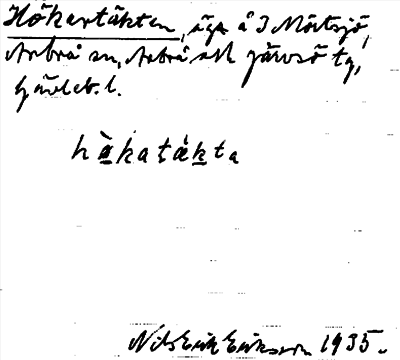 Hökartäkten, äga å 3 Mörtsjö,
Arbrå sn, Arbrå och Järvsö tg,
Gävleb. l.
hàkatákta
Nils Erik Eriksson 1935.